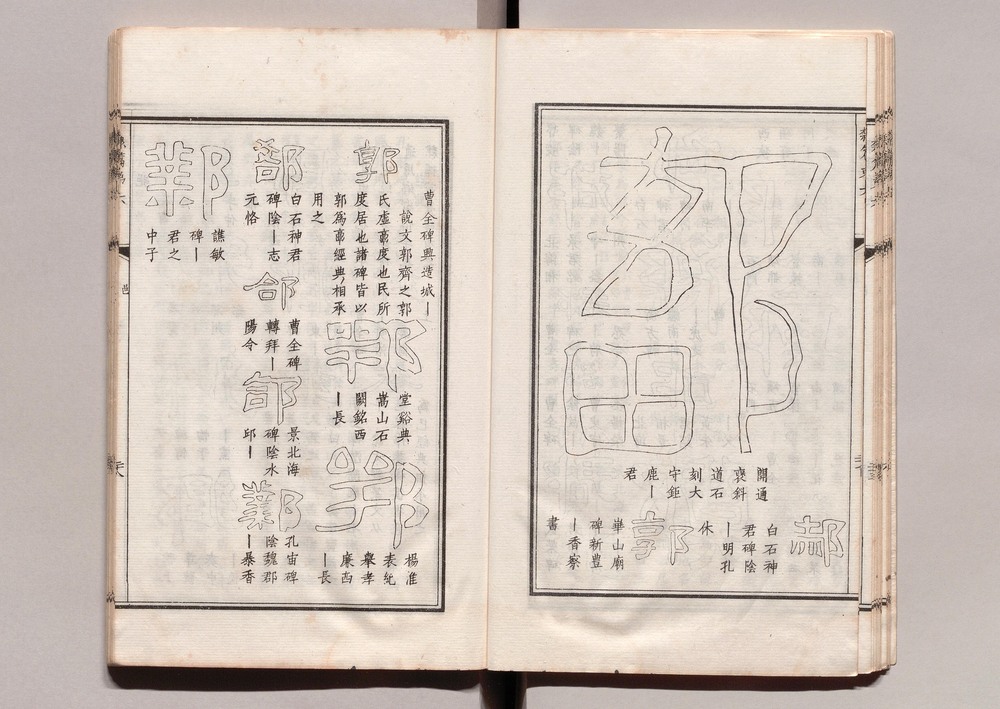 鄐
開通
褒斜
道石
刻大
守鉅
鹿丨
君
郝
白石神
君碑陰
丨明孔
休
郭
華山廟
碑新豐
丨香察
書
郭
曹全碑興造城丨
說文郭齊之郭
氏虛𩫏度也民所
度居也諸碑皆以
郭爲𩫏經典相承
用之
鄂
堂谿典
嵩山石
闕銘西
丨長
楊淮
表紀
舉孝
廉西
丨長
郤
白石神君
碑陰丨志
元恪
郃
曹全碑
轉拜丨
陽令
郚
景北海
碑陰水
邱丨
鄴
孔宙碑
陰魏郡
丨暴香
鄴
譙敏
碑丨
君之
中子
邑